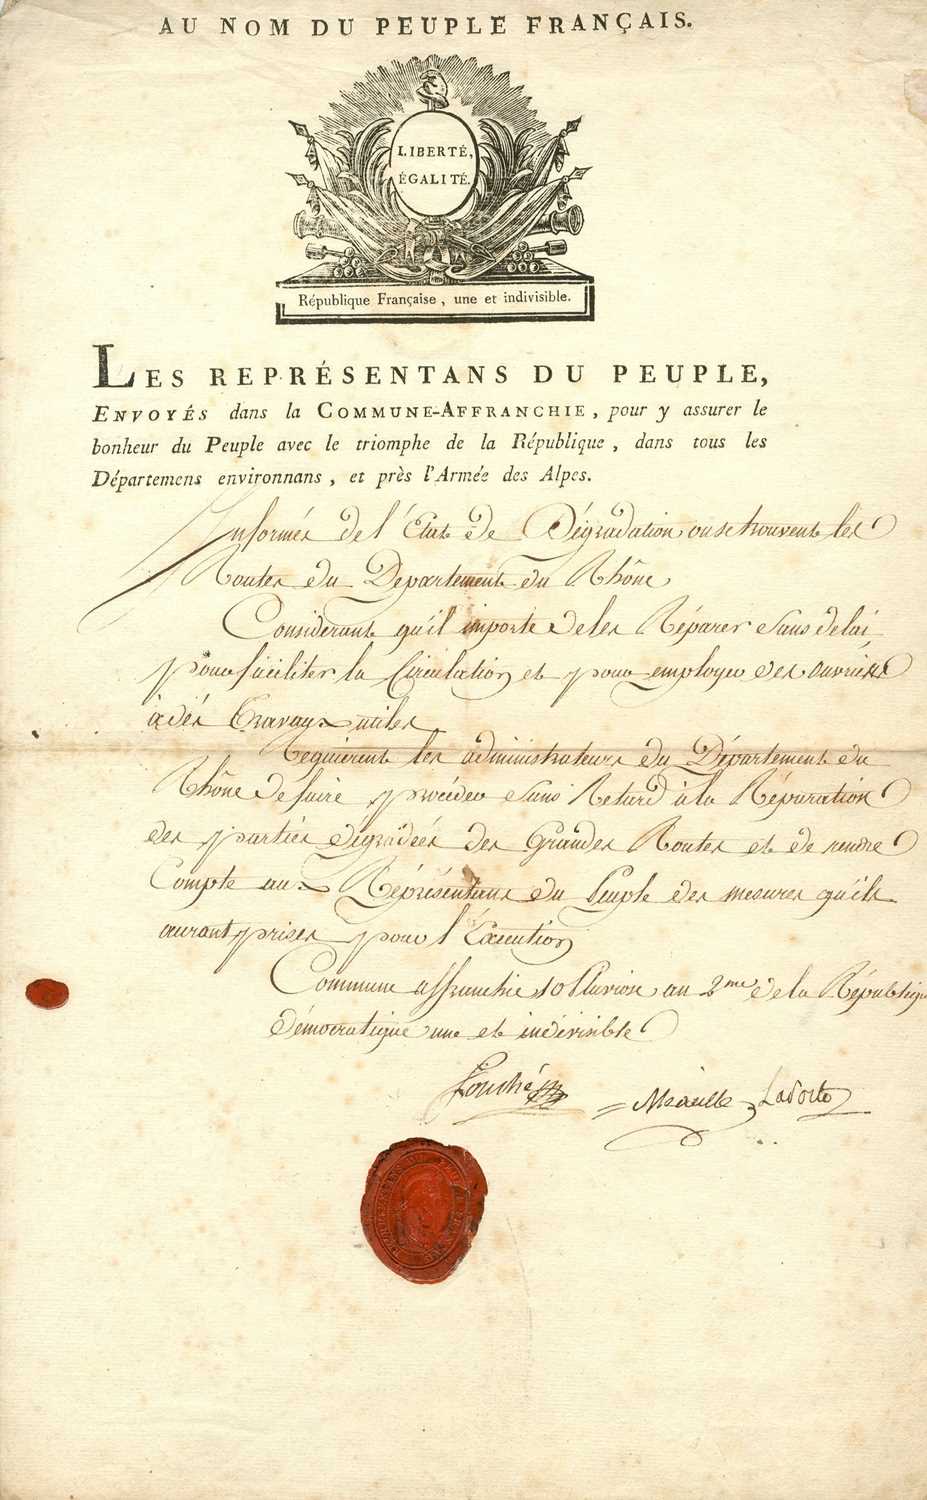 AU NOM DU PEUPLE FRANÇAIS.
LIBERTÉ,
ÉGALITÉ.
République Française, une et indivisible.
LES REPRÉSENTANS DU PEUPLE,
ENVOYÉS dans la COMMUNE-AFFRANCHIE, pour y assurer le
bonheur du Peuple avec le triomphe de la République, dans tous les
Départemens environnans, et près l'Armée des Alpes.
Informés de l'État de Dégradation ou se trouvent les
Routes du Département du Rhône
Considerant qu'il importe de les Réparer Sans delai
pour faciliter la Circulation et pour employer des ouvriers
à dés Travaux utiles
Requièrent les administrateurs du Département du
Rhône de faire procéder Sans Retard à la Réparation
des parties dégradées des Grandes Routes et de rendre
Compte aux Réprésentans du Peuple des mesures qu'ils
auront prises pour l'Éxécution
Commune affranchie 10 Pluviose an 2me de la République
démocratique une et indivisible
Fouché Méaulle Laporte